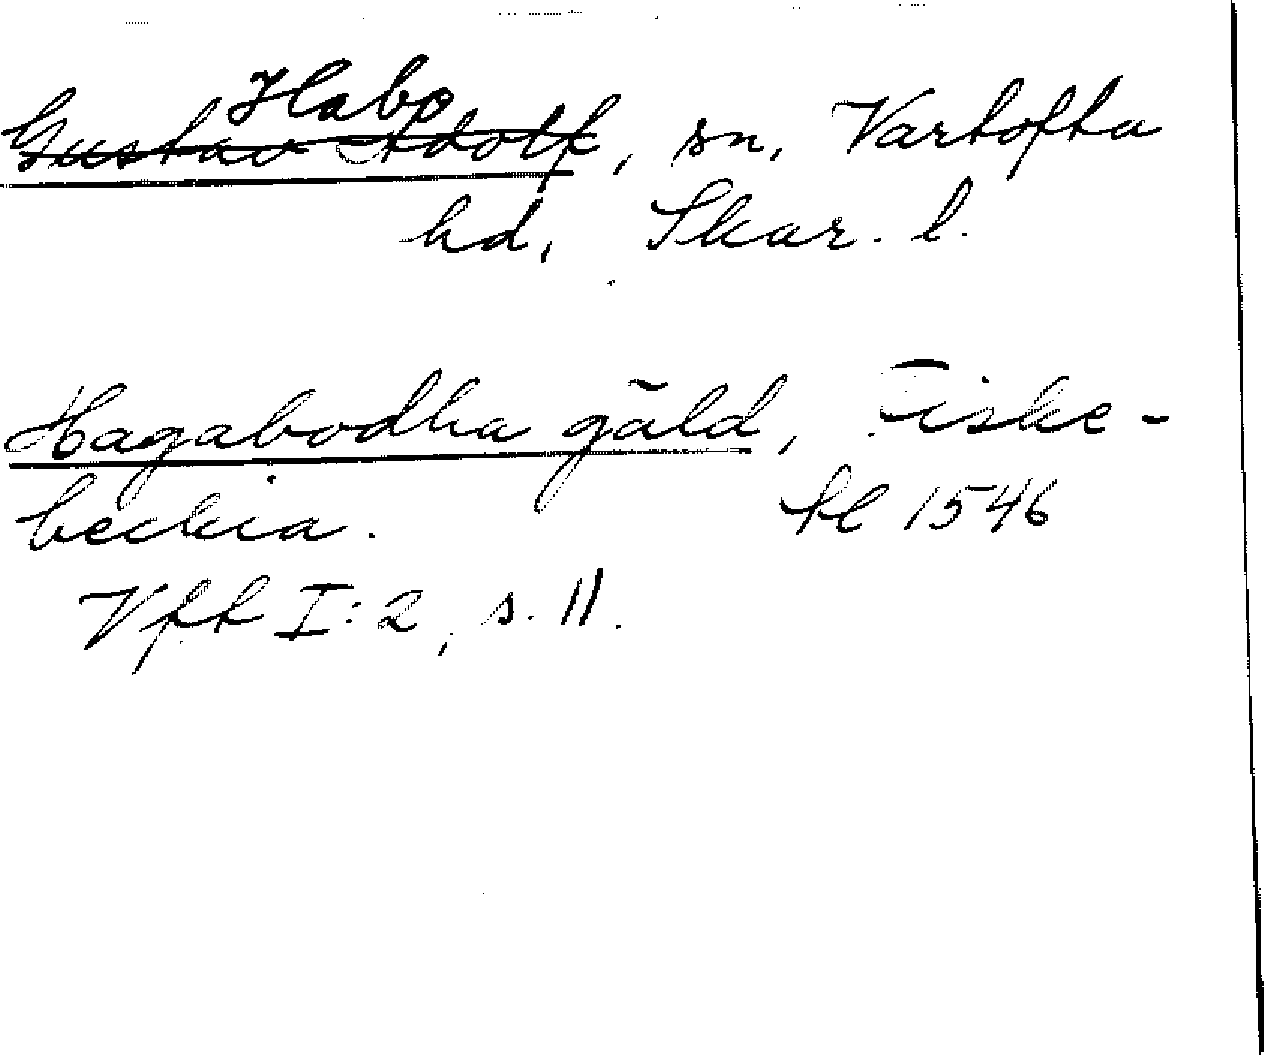 Habo
Gustav Adolf, sn, Vartofta
hd, Skar. l.
Hagabodha gäld, Fiske-
beckia. kl 1546
Vfft I:2, s. 11.